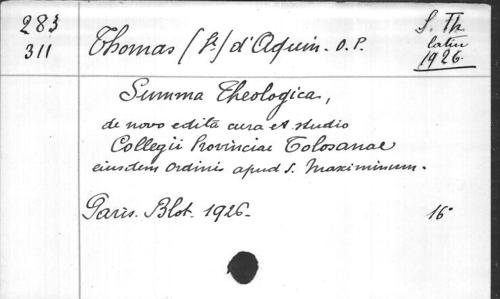 283
311
Thomas (St) d'Aquin. O.P.
S. Th.
latin
1926.
Summa Theologica,
de novo edita cura et studio
Collegii Provinciae Tolosanae
eiusdem Ordinis apud S. Maximinum.
Paris. Blot. 1926.
16°